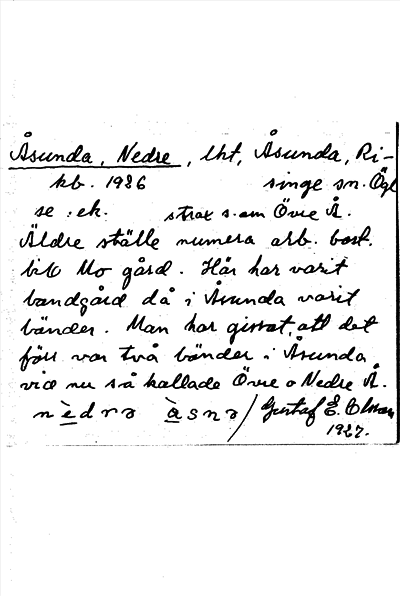 Åsunda, Nedre, lht, Åsunda, Ri-
kb. 1986 singe sn. Ögl
se: ek. strax s. om Övre Å.
Äldre ställe numera arb. bost.
till Mo gård. Här har varit
bondgård då i Åsunda varit
bönder. Man har gissat, att det
förr var två bönder i Åsunda
vid nu så kallade Övre o Nedre Å.
nèdrə àsnə / Gustaf E. Olsson
1927.